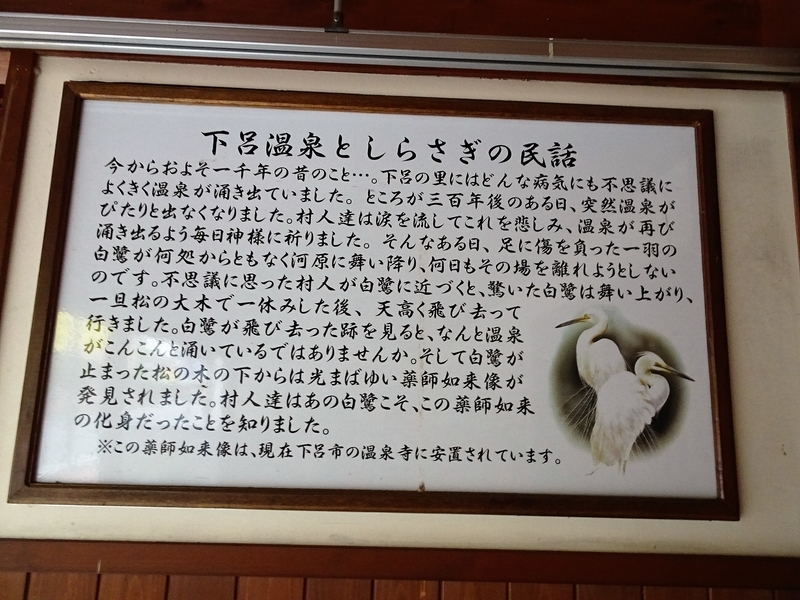 下呂温泉としらさぎの民話
今からおよそ一千年の昔のこと…。下呂の里にはどんな病気にも不思議に
よくきく温泉が涌き出ていました。ところが三百年後のある日、突然温泉が
ぴたりと出なくなりました。村人達は涙を流してこれを悲しみ、温泉が再び
涌き出るよう毎日神様に祈りました。そんなある日、足に傷を負った一羽の
白鷺が何処からともなく河原に舞い降り、何日もその場を離れようとしない
のです。不思議に思った村人が白鷺に近づくと、驚いた白鷺は舞い上がり、
一旦松の大木で一休みした後、天高く飛び去って
行きました。白鷺が飛び去った跡を見ると、なんと温泉
がこんこんと涌いているではありませんか。そして白鷺が
止まった松の木の下からは光まばゆい薬師如来像が
発見されました。村人達はあの白鷺こそ、この薬師如来
の化身だったことを知りました。
※この薬師如来像は、現在下呂市の温泉寺に安置されています。